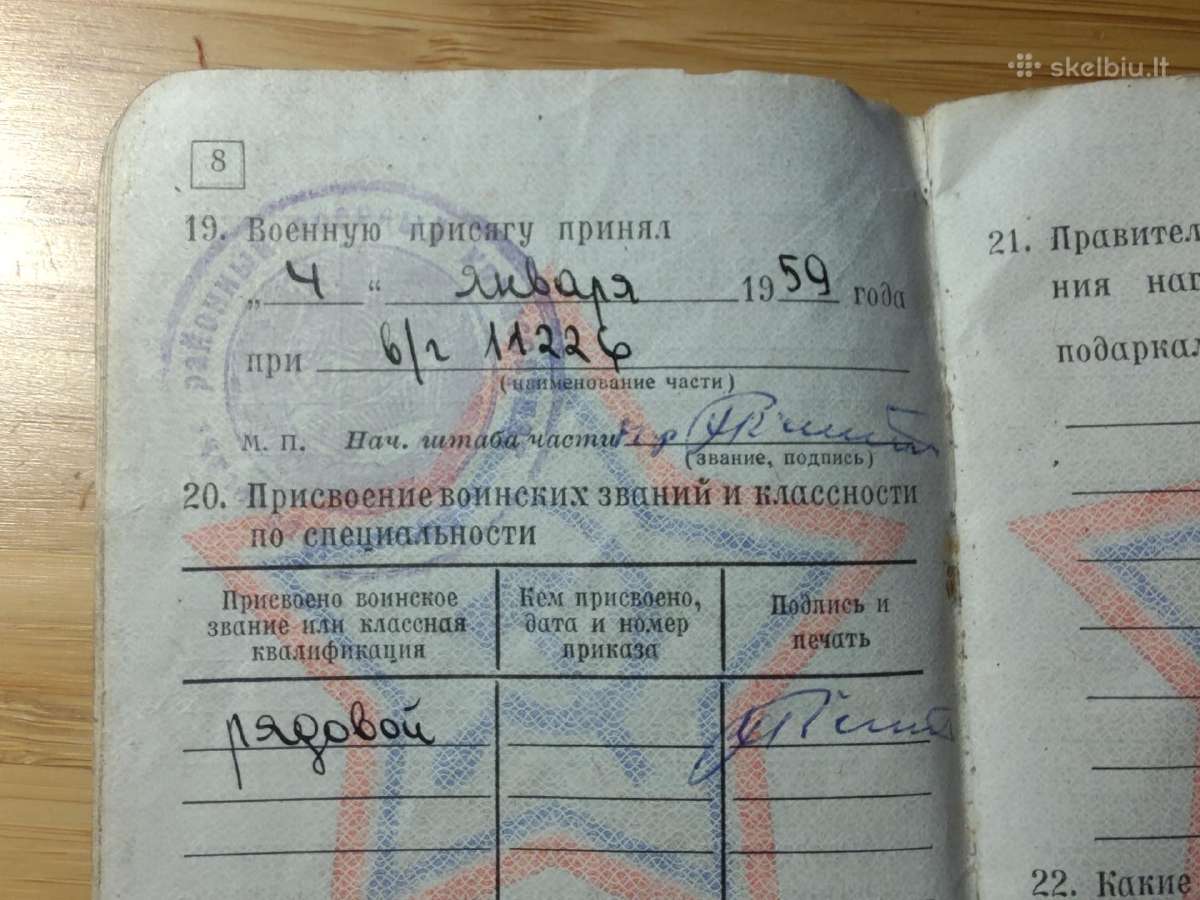 skelbiu.lt
8
19. Военную присягу принял
„ 4 “ января 1959 года
при в/г 11226
(наименование части)
М. П. Нач. штаба части
(звание, подпись)
20. Присвоение воинских званий и классности
по специальности
Присвоено воинское
звание или классная
квалификация
Кем присвоено,
дата и номер
приказа
Подпись и
печать
рядовой
районный
21. Правител
ния наг
подаркал
22. Какие